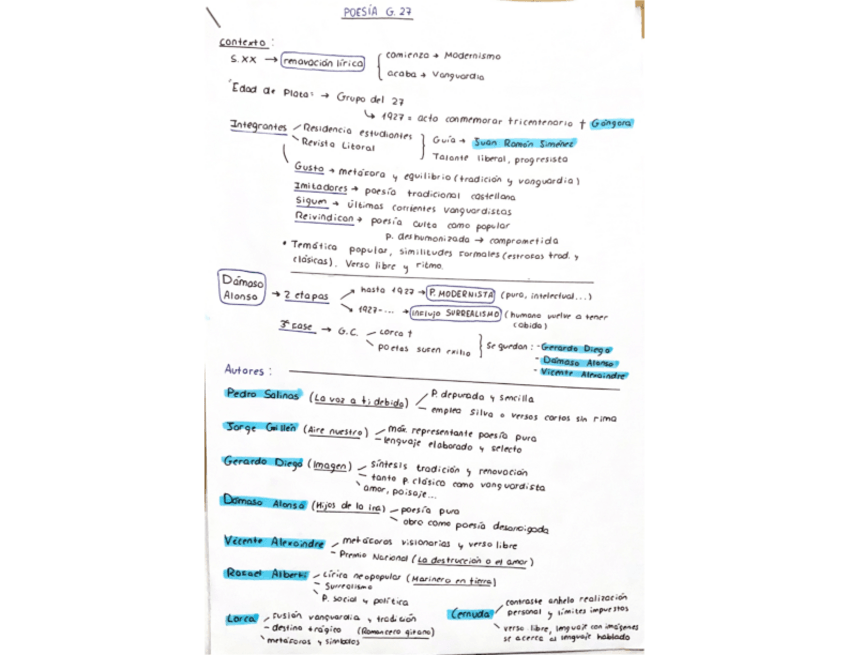 POESÍA G. 27
contexto:
S. XX → renovación lírica
comienza → Modernismo
acaba → Vanguardia
"Edad de Plata: → Grupo del 27
↳ 1927 = acto conmemorar tricentenario † Góngora
Integrantes
Residencia estudiantes
Revista Litoral
Guía → Juan Ramón Jiménez
Talante liberal, progresista
Gusto → metáfora y equilibrio (tradición y vanguardia)
Imitadores → poesía tradicional castellana
Siguen → últimas corrientes vanguardistas
Reivindican → poesía culta como popular
p. deshumanizada → comprometida
• Temática popular, similitudes formales (estrofas trad. y
clásicas). Verso libre y ritmo.
Dámaso
Alonso
→ 2 etapas
hasta 1927 → P. MODERNISTA (pura, intelectual...)
1927-... → influjo SURREALISMO (humano vuelve a tener
cabida)
3ª fase → G.C.
Lorca †
poetas sufren exilio
Se quedan: - Gerardo Diego
- Dámaso Alonso
- Vicente Aleixandre
Autores:
Pedro Salinas (La voz a ti debida)
P. depurada y sencilla
emplea silva o versos cortos sin rima
Jorge Guillén (Aire nuestro)
máx. representante poesía pura
lenguaje elaborado y selecto
Gerardo Diego (Imagen)
síntesis tradición y renovación
tanto p. clásica como vanguardista
amor, paisaje...
Dámaso Alonso (Hijos de la ira)
poesía pura
obra como poesía desarraigada
Vicente Aleixandre
metáforas visionarias y verso libre
Premio Nacional (La destrucción o el amor)
Rafael Alberti
Lírica neopopular (Marinero en tierra)
Surrealismo
P. social y política
Lorca
fusión vanguardia y tradición
destino trágico (Romancero gitano)
metáforas y símbolos
Cernuda
contraste anhelo realización
personal y límites impuestos
verso libre, lenguaje con imágenes
se acerca al lenguaje hablado